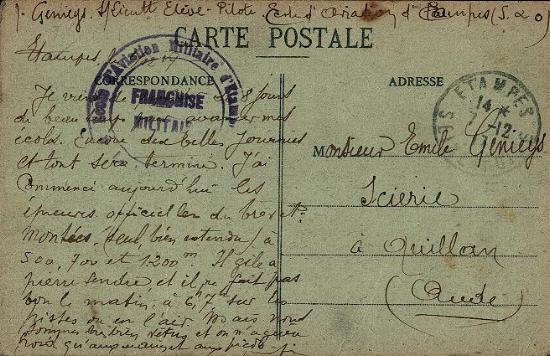 J. Genieys S/Lieutt Elève-Pilote Ecole d'Aviation d'Etampes (S. & O)
CARTE POSTALE
Etampes
CORRESPONDANCE
ADRESSE
d'Aviation Militaire d'Etampes
FRANCHISE
MILITAIRE
ETAMPES
14 *
7 -12
Je viens de 8 jours
de beau temps avancer mes
écoles. Encore des belles journées
et tout sera terminé. J'ai
commencé aujourd'hui les
épreuves officielles du brevet.
Montées (seul bien entendu) à
500, 700 et 1200m. Il gèle à
pierre fendre, et il ne fait pas
bon le matin à 6, 7h sur les
pistes ou en l'air. Mais nous
sommes très bien vêtus et on n'a guère
froid qu'aux mains et aux pieds
Monsieur Emile Genieys
Scierie
à Quillan
(Aude)